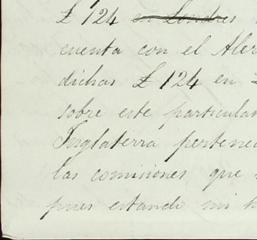 £ 124 en Londres
cuenta con el
dichas £ 124 en
sobre este particular
Inglaterra
las comisiones que
pues estando mi